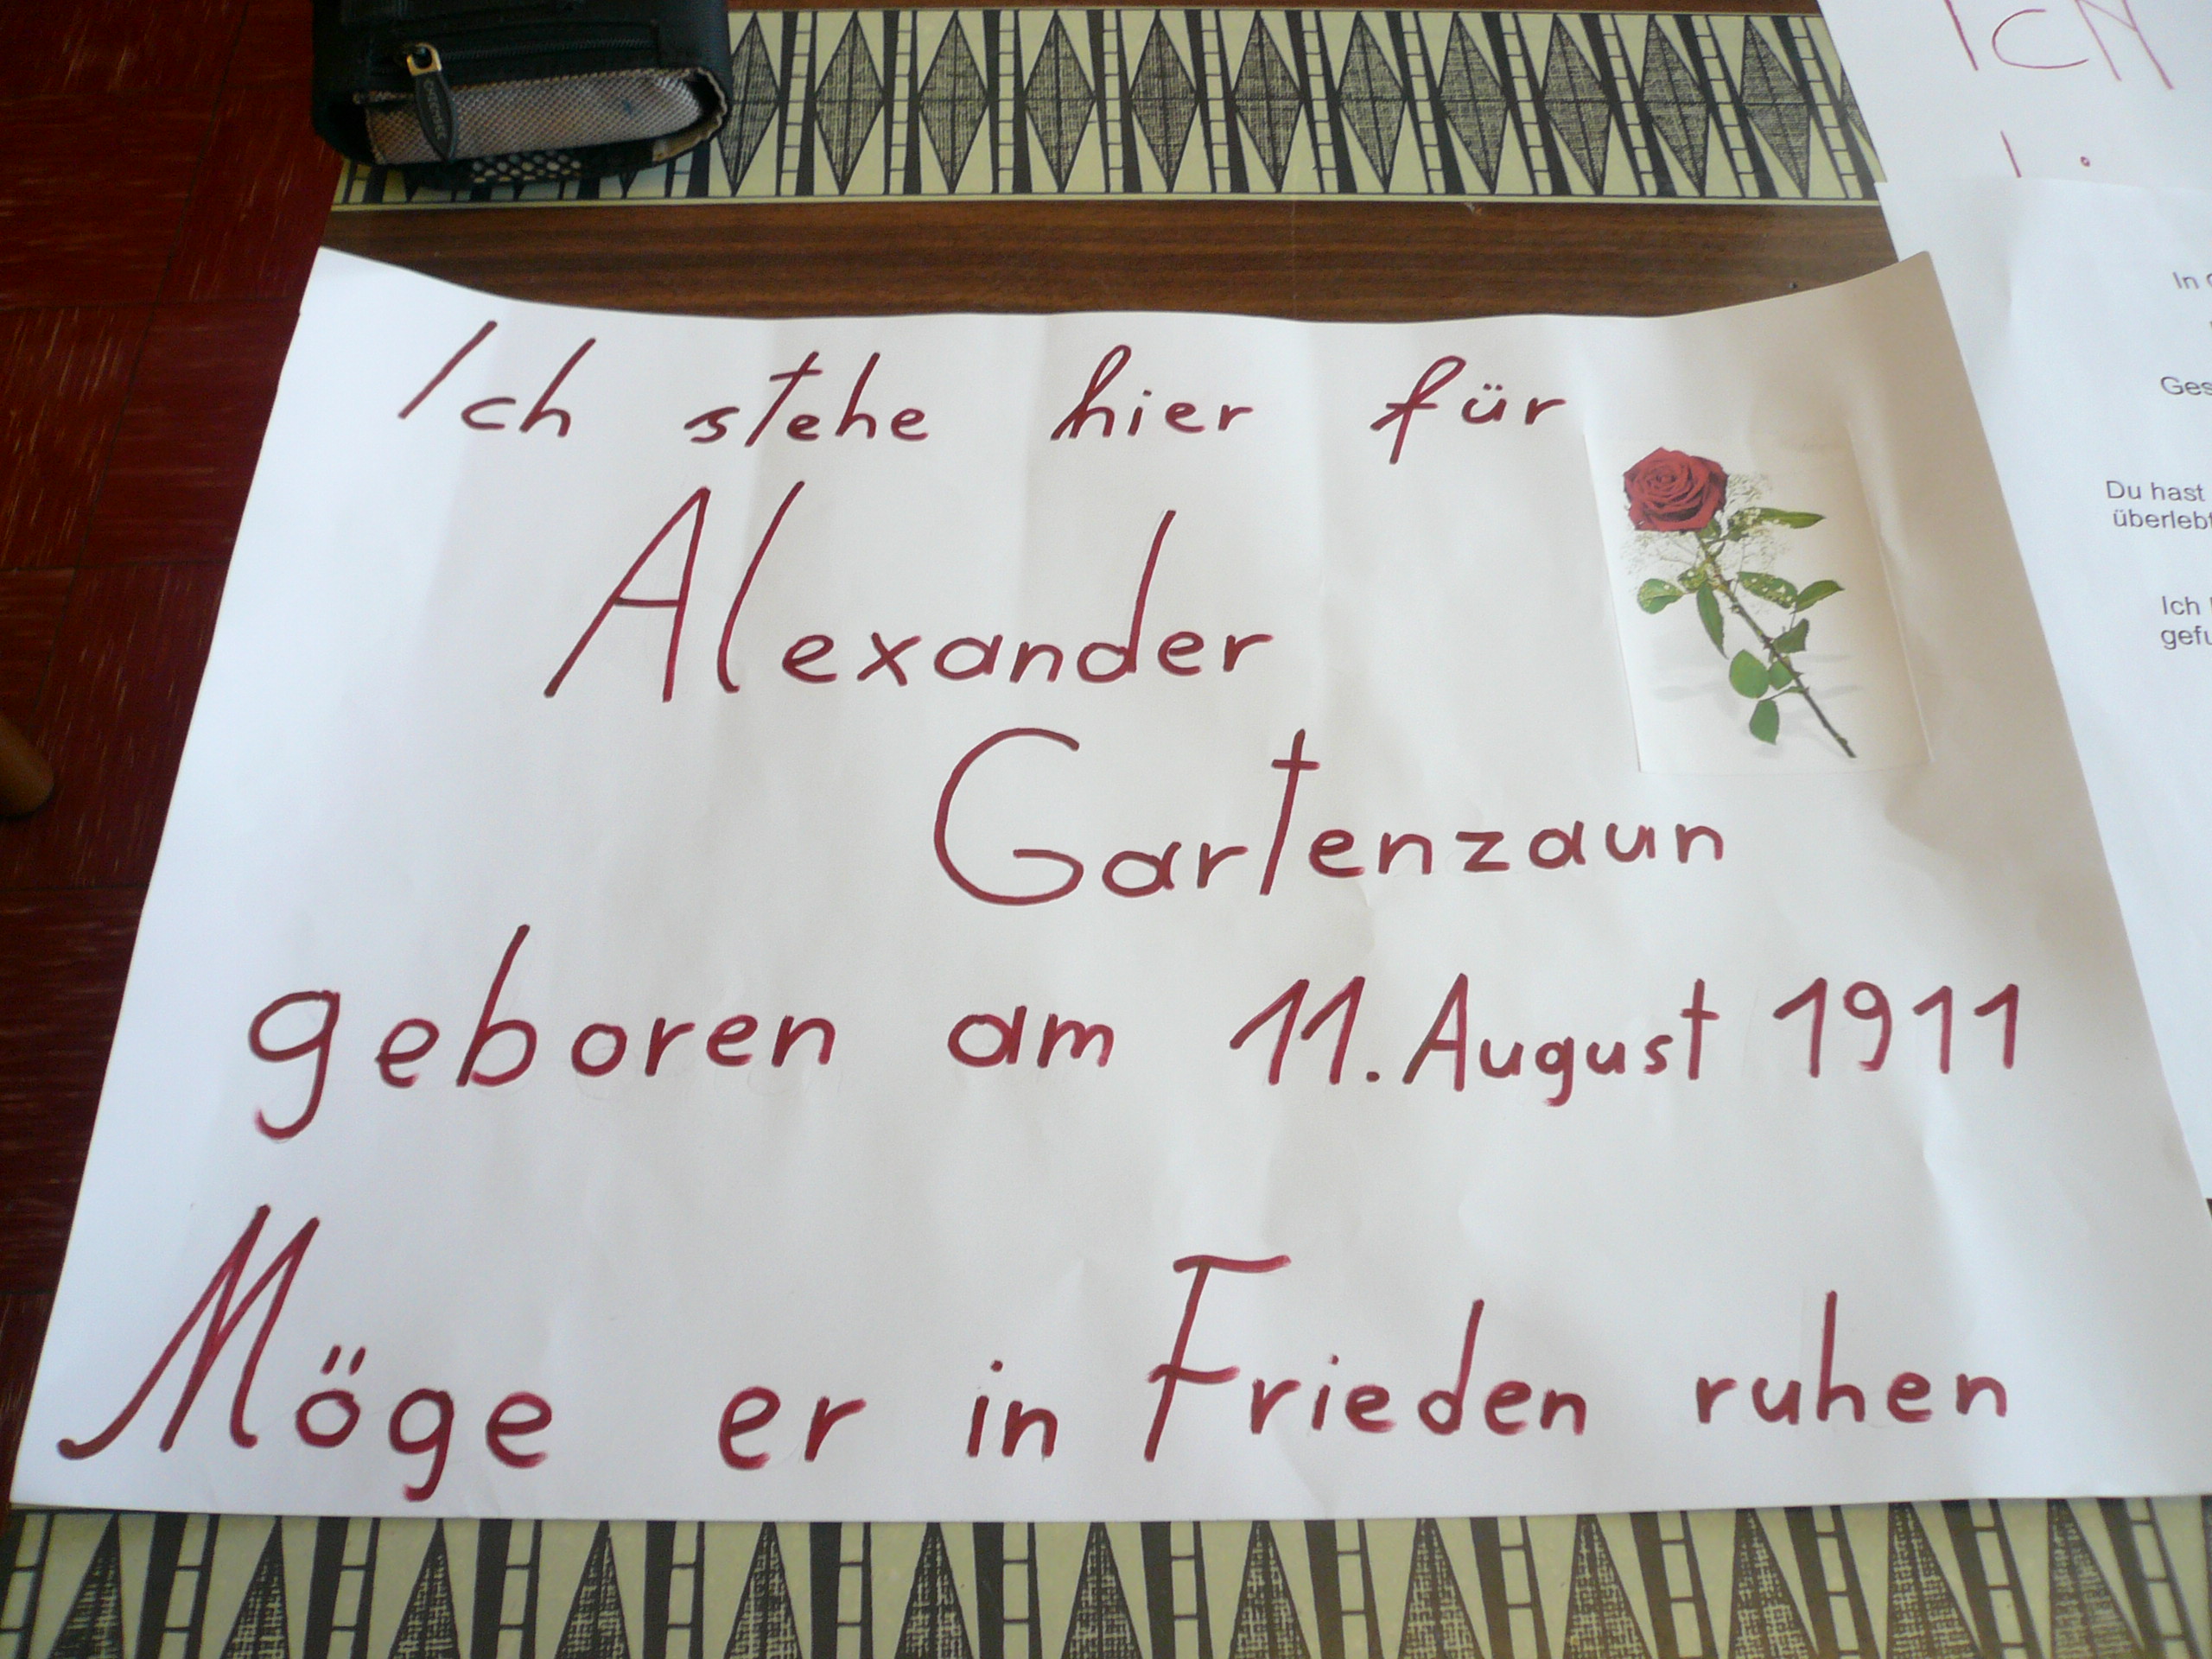 Ich stehe hier für
Alexander
Gartenzaun
geboren am 11. August 1911
Möge er in Frieden ruhen
ICH
In
Ges
Du hast
überlebt
Ich
gefu